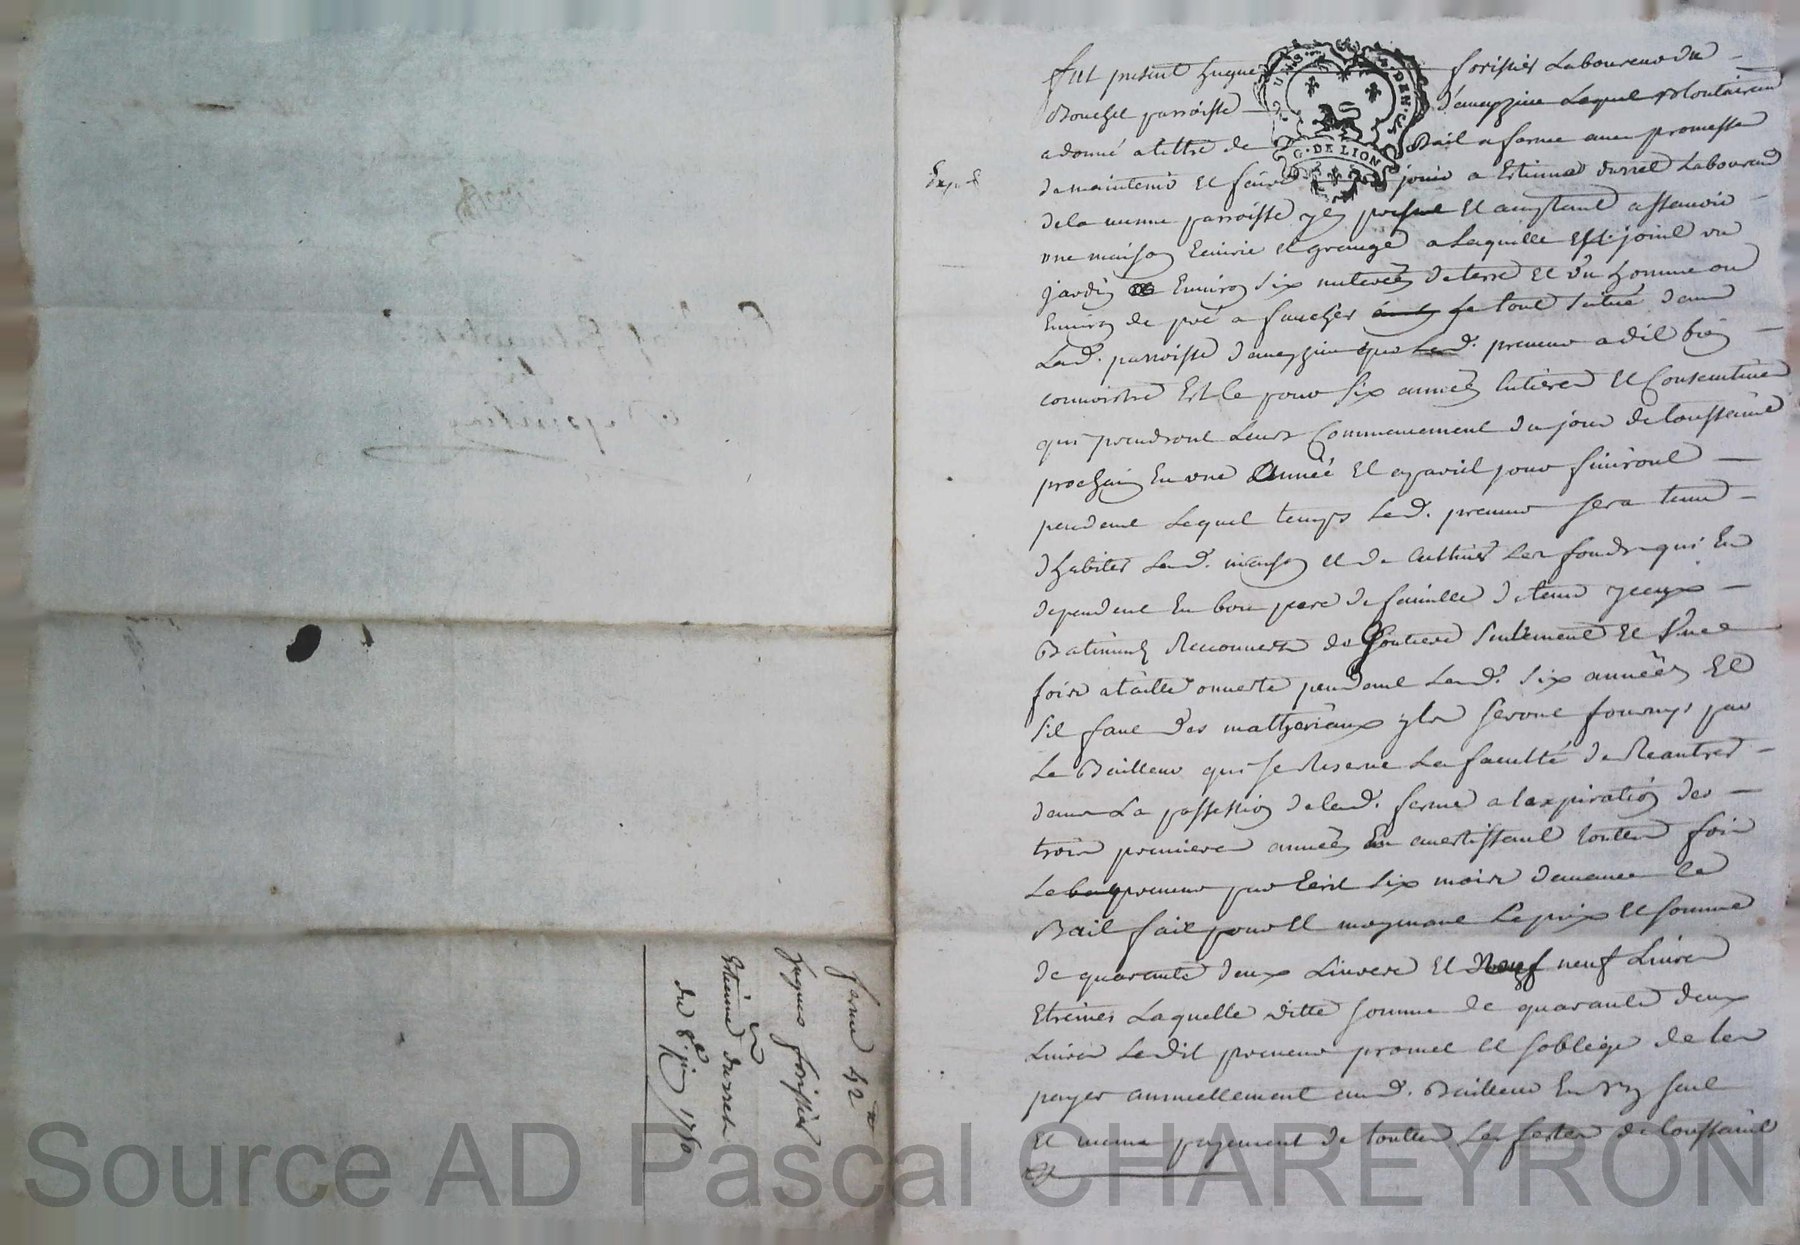 fut present hugue forissier Laboureur du
Bouchet parroisse d'aveyzieu Lequel volontairement
a donné a tittre de Bail a ferme avec promesse
de maintenir et faire jouir a Estienne dursel Laboureur
de la meme parroisse yci present et aceptant assavoir
une maison Ecurie et grange a Laquelle est joint un
jardin Environ six meterées de terre et d'un homme ou
Environ de pré a faucher Le tout situé dans
Lad. parroisse d'aveyzieu que Led. preneur a dit bien
connoistre Est Ce pour six années Entieres et Consecutives
qui prendront Leurs Commencement du jour de toussaint
prochain En une Année et a pareil jour finiront
pendant Lequel temps Led. preneur sera tenu
d'habiter Lad. maison et de Cultiver Les fonds qui En
dependent En bon pere de famille de tenir yceux
Batiments Recouverts de Goutiere seulement et Une
fois a taille ouverte pendant Lesd. six années Et
s'il faut des matheriaux yls seront fournys par
Le Bailleur qui se Reserve La faculté de Reantrer
dans La possession de lad. ferme a lexpiration des
trois premieres années En avertissant toutes fois
Le preneur par Ecrit six mois d'avance Le
Bail fait pour Et moyenant Le prix et somme
de quarante deux Livres et neuf Livres
Etreines Laquelle ditte somme de quarante deux
Livres Ledit preneur promet et soblige de les
payer annuellement aud. Bailleur En un seul
Et meme payement de toutes Les festes de toussaint
ferme 42
hugues forissier
a
Estienne dursel
du 8e juin 1780
G. DE LION
Source AD Pascal CHAREYRON